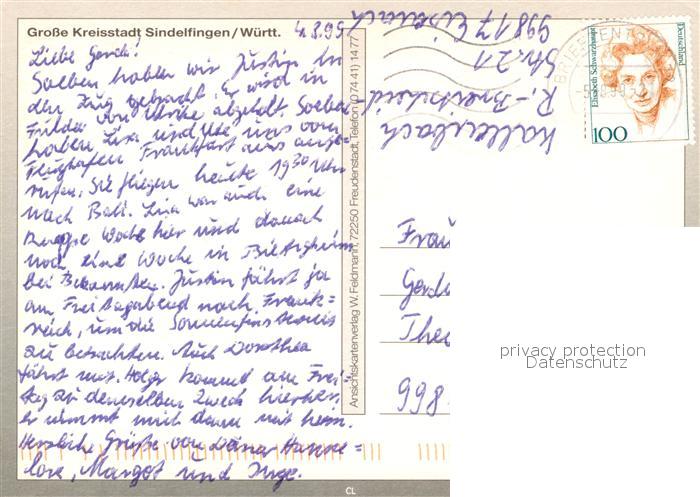 Große Kreisstadt Sindelfingen/Württ.
4.8.99
Liebe Gerda!
Soeben haben wir Justin in
den Zug gebracht. Er wird in
Fulda von Ulrike abgeholt. Soeben
haben Lisa und Ute uns vom
Flughafen Frankfurt aus ange=
rufen. Sie fliegen heute 19³⁰ Uhr
nach Bali. Lisa war auch eine
knappe Woche hier und danach
noch eine Woche in Bietigheim
bei Bekannten. Justin fährt ja
am Freitagabend nach Frank=
reich, um die Sonnenfinsternis
zu betrachten. Auch Dorothea
fährt mit. Holge kommt am Frei=
tag zu demselben Zweck hierher,
er nimmt mich dann mit heim.
Herzliche Grüße von Deiner Hanne=
lore, Margot und Inge.
Ansichtskartenverlag W. Feldmann, 72250 Freudenstadt, Telefon (0 74 41) 14 77
Kaltenbach
R.-Breitscheid
Str. 21
99817 Eisenach
BRIEFZENTRUM
Elisabeth Schwarzhaupt
Deutschland
100
Frau
Gerda
Theo
998
privacy protection
Datenschutz
CL